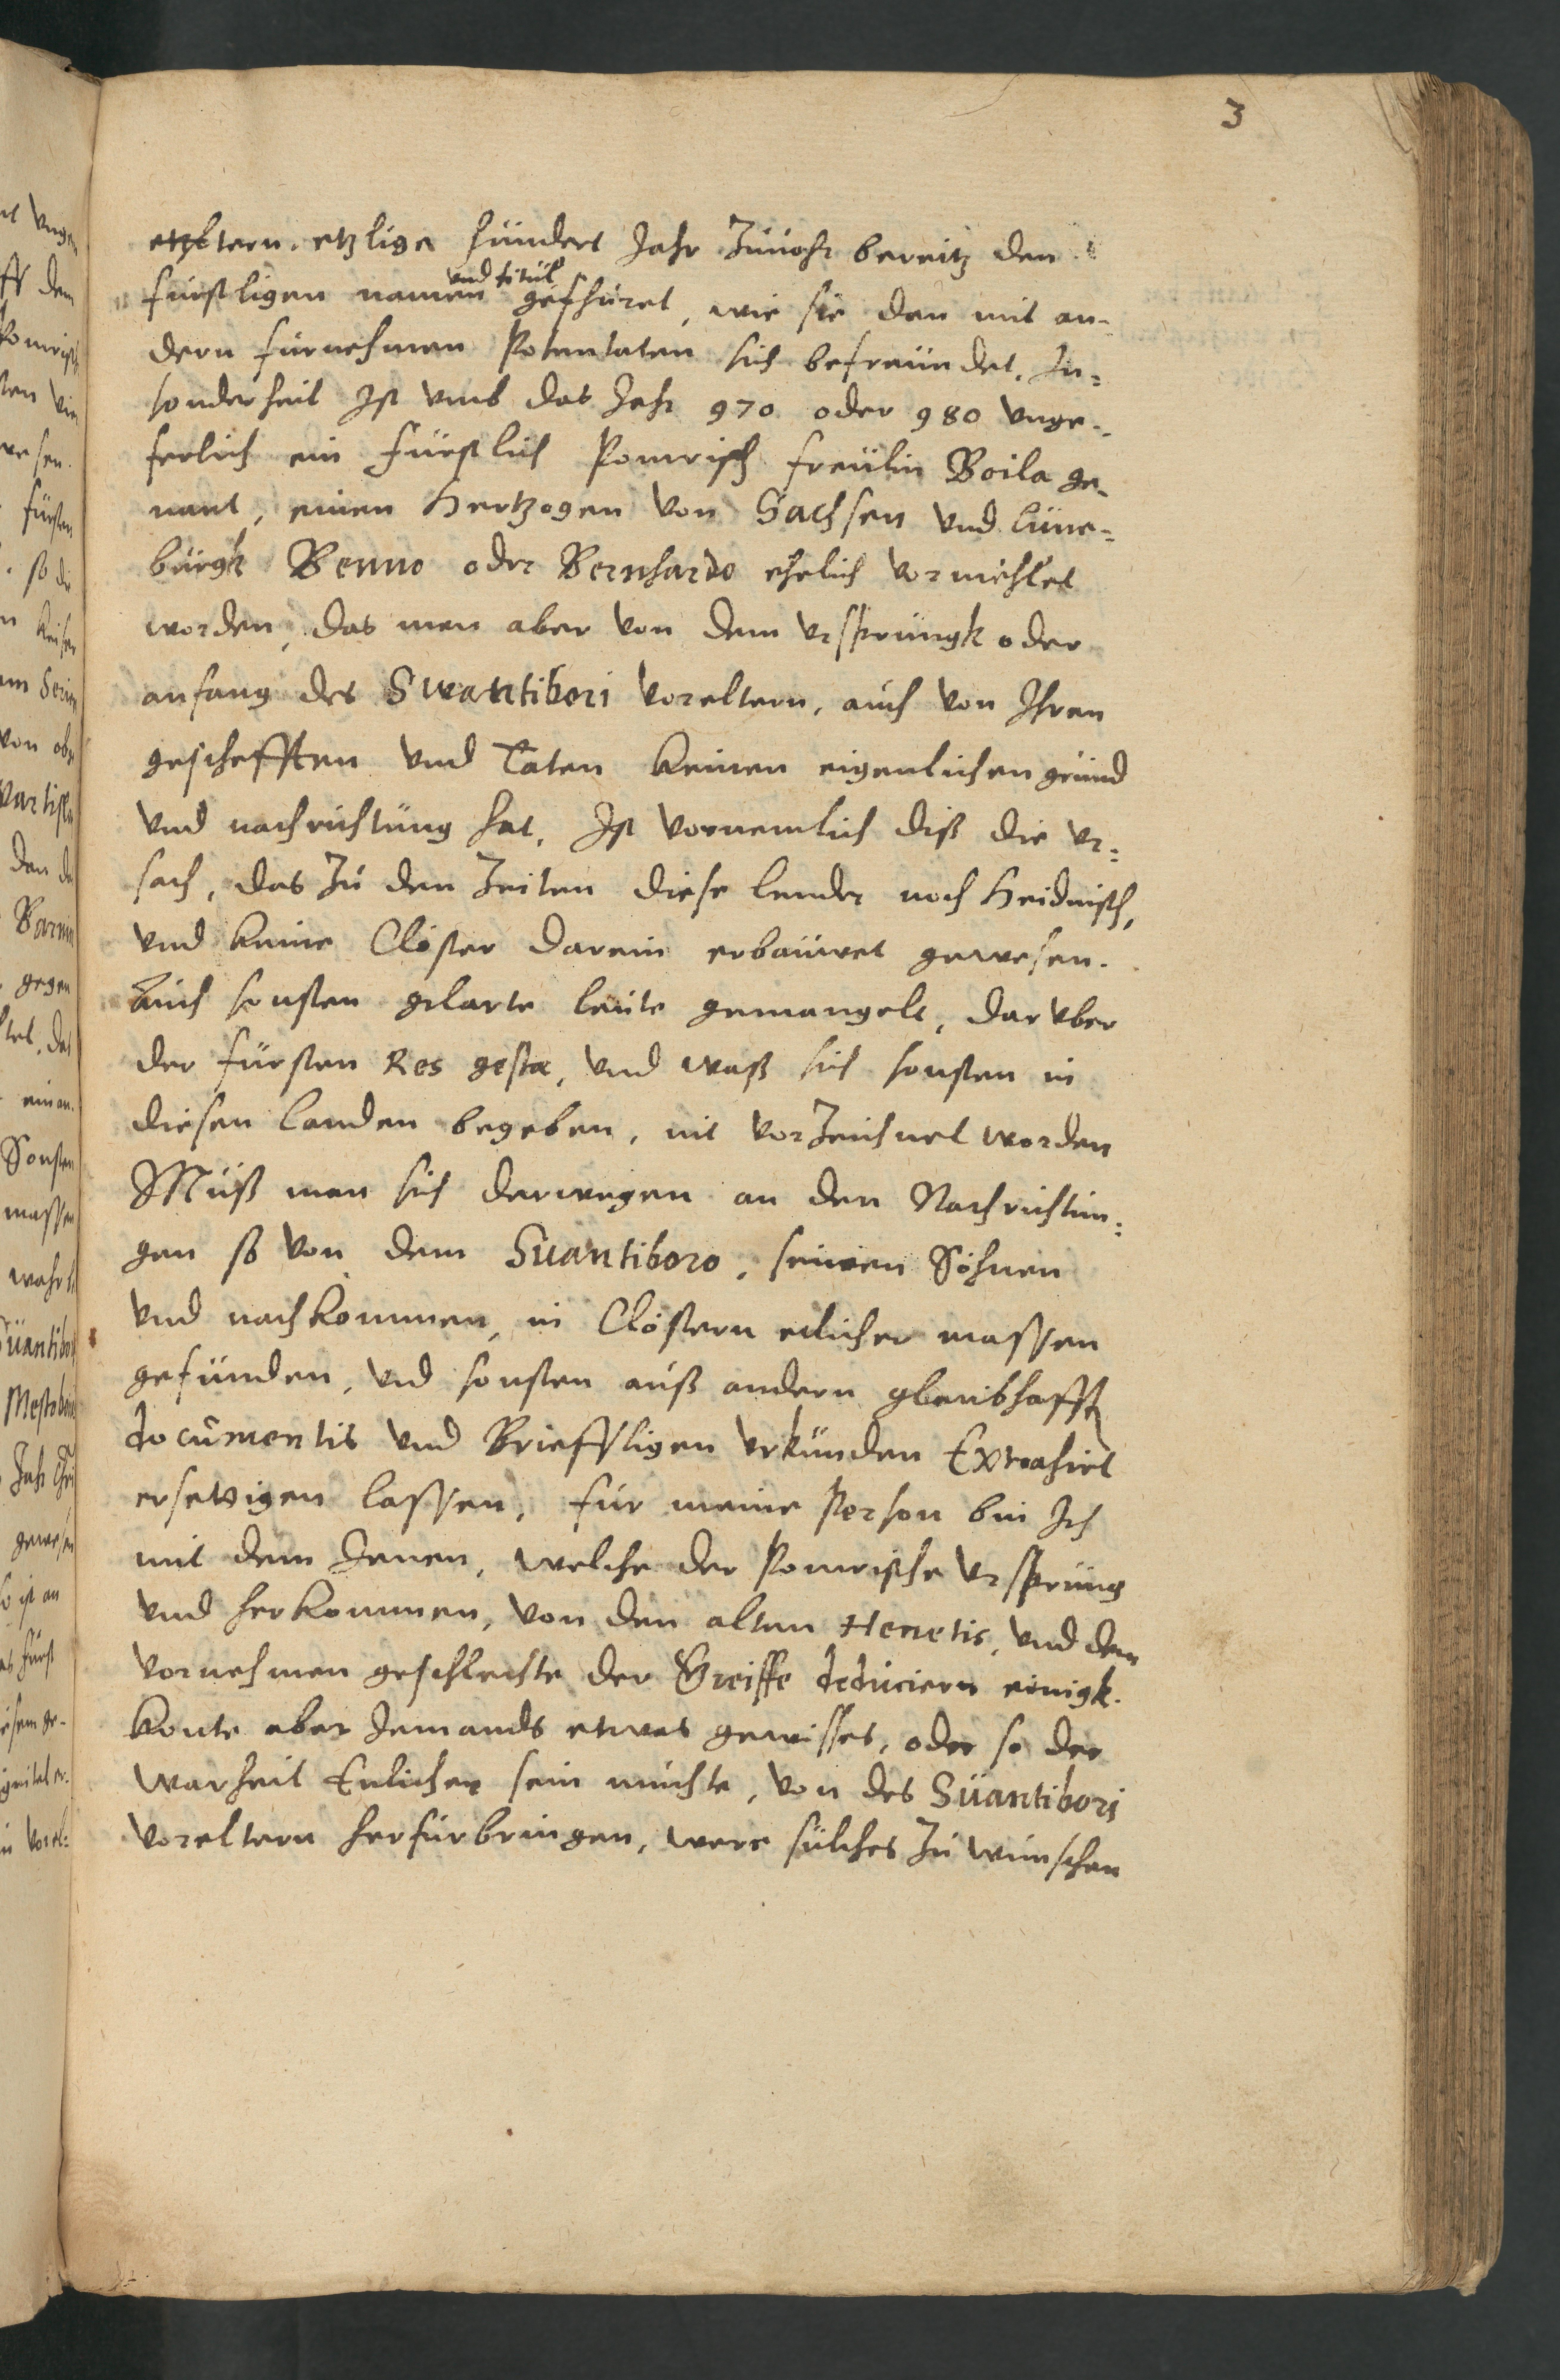 3
etzltern, etzlige hundert Jahr zuuohr bereitz den
furstligen namen und titul gefhuret, wie sie dan mit an-
dern furnehmen Potentaten sich befreundet. In-
sonderheit Ist umb das Jahr 970 oder 980 unge-
ferlich ein Fürstlich Pomrisch freulin Boila ge-
nant, einen Hertzogen von Sachsen und Lüne-
burgk Benno oder Bernhardo ehelich vormehlet
worden, das man aber von dem ursprungk oder
anfang des Swantibori voreltern, auch von Ihren
geschefften und Taten keinen eigenlichen grund
und nachrichtung hat. Ist vornemlich diß die ur-
sach, das zu den Zeiten diese lender noch Heidnisch,
und keine Clöster darein erbauwet gewesen.
Auch sonsten gelarte leute gemangelt, daruber
der fürsten Res gestæ, und waß sich sonsten in
diesen landen begeben, nit vorzeichnet worden
Muß man sich derwegen an den Nachrichtun-
gen so von dem Suantiboro, seinen Söhnen
und nachkommen, in Clöstern etlicher massen
gefunden, und sonsten auß andern glaubhafft
documentis und Brieffligen urkunden Extrahirt
ersettigen lassen, für meine Person bin Ich
mit dem Jenen, welche der Pomrische ursprung
und herkommen, von den alten Henetis, und dem
vornehmen geschlechte der Greiffe deduciern einigk.
konte aber Jemands etwas gewisses, oder so der
Warheit Enlicher sein muchte, von des Suantibori
voreltern herfurbringen, were sulches zu wunschen